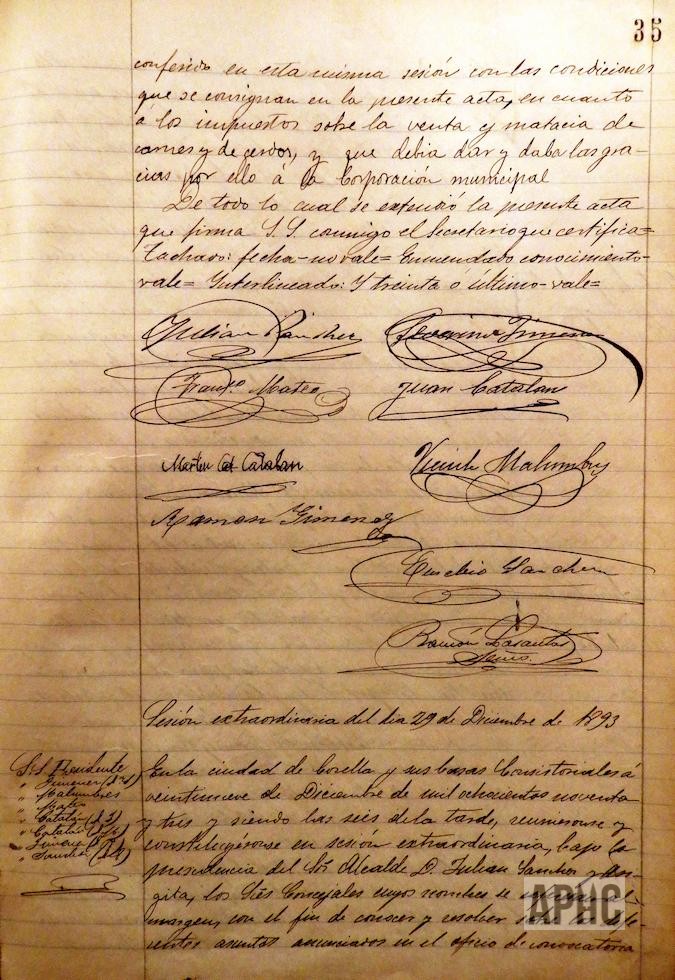 35
conferido en esta misma sesión con las condiciones
que se consignan en la presente acta, en cuanto
a los impuestos sobre la venta y matacia de
carnes y de cerdos, y que debia dar y daba las gra-
cias por ello á la Corporación municipal
De todo lo cual se extendió la presente acta
que firma S.S. conmigo el Secretario que certifica=
Tachado: fecha-no vale= Enmendado conocimiento-
vale= Interlineado: Y treinta ó último-vale=
Julian Sanchez
Gimenez
Franco. Mateo
Juan Catalan
Catalan
Malumbres
Ramon Gimenez
Eusebio Sanchez
Ramón Lasantas
Sesión extraordinaria del dia 29 de Diciembre de 1893
S.S. Presidente
" Gimenez
" Malumbres
" Mateo
" Catalán
" Catalán
" Gimenez
" Sanchez
En la ciudad de Corella y sus Casas Consistoriales á
veintinueve de Diciembre de mil ochocientos noventa
y tres y siendo las seis de la tarde, reunieronse y
constituyéronse en sesión extraordinaria, bajo la
presidencia del Sor Alcalde D. Julian Sanchez y
los Sres Concejales cuyos nombres se al
margen, con el fin de conocer y resolver
asuntos anunciados en el oficio de convocatoria
APHC